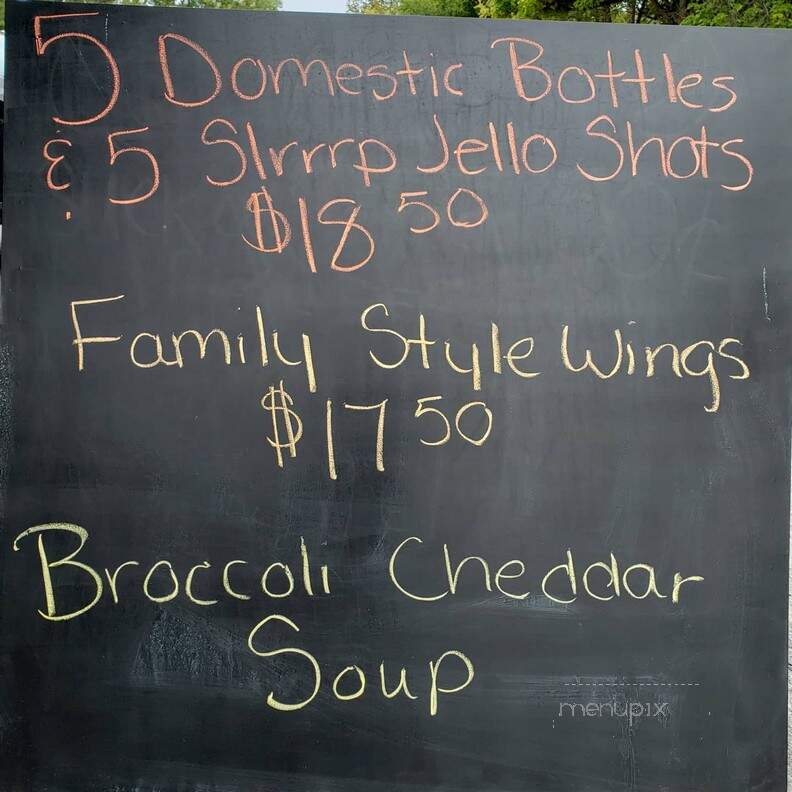 5 Domestic Bottles
& 5 Slrrrp Jello Shots
$18 50
Family Style Wings
$17 50
Broccoli Cheddar
Soup
menupix